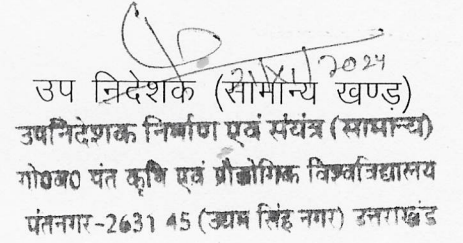 21/XI/2024
उप निदेशक (सामान्य खण्ड)
उपनिदेशक निर्माण एवं संयंत्र (सामान्य)
गो०ब० पंत कृषि एवं प्रौद्योगिक विश्वविद्यालय
पंतनगर-2631 45 (उधम सिंह नगर) उत्तराखंड